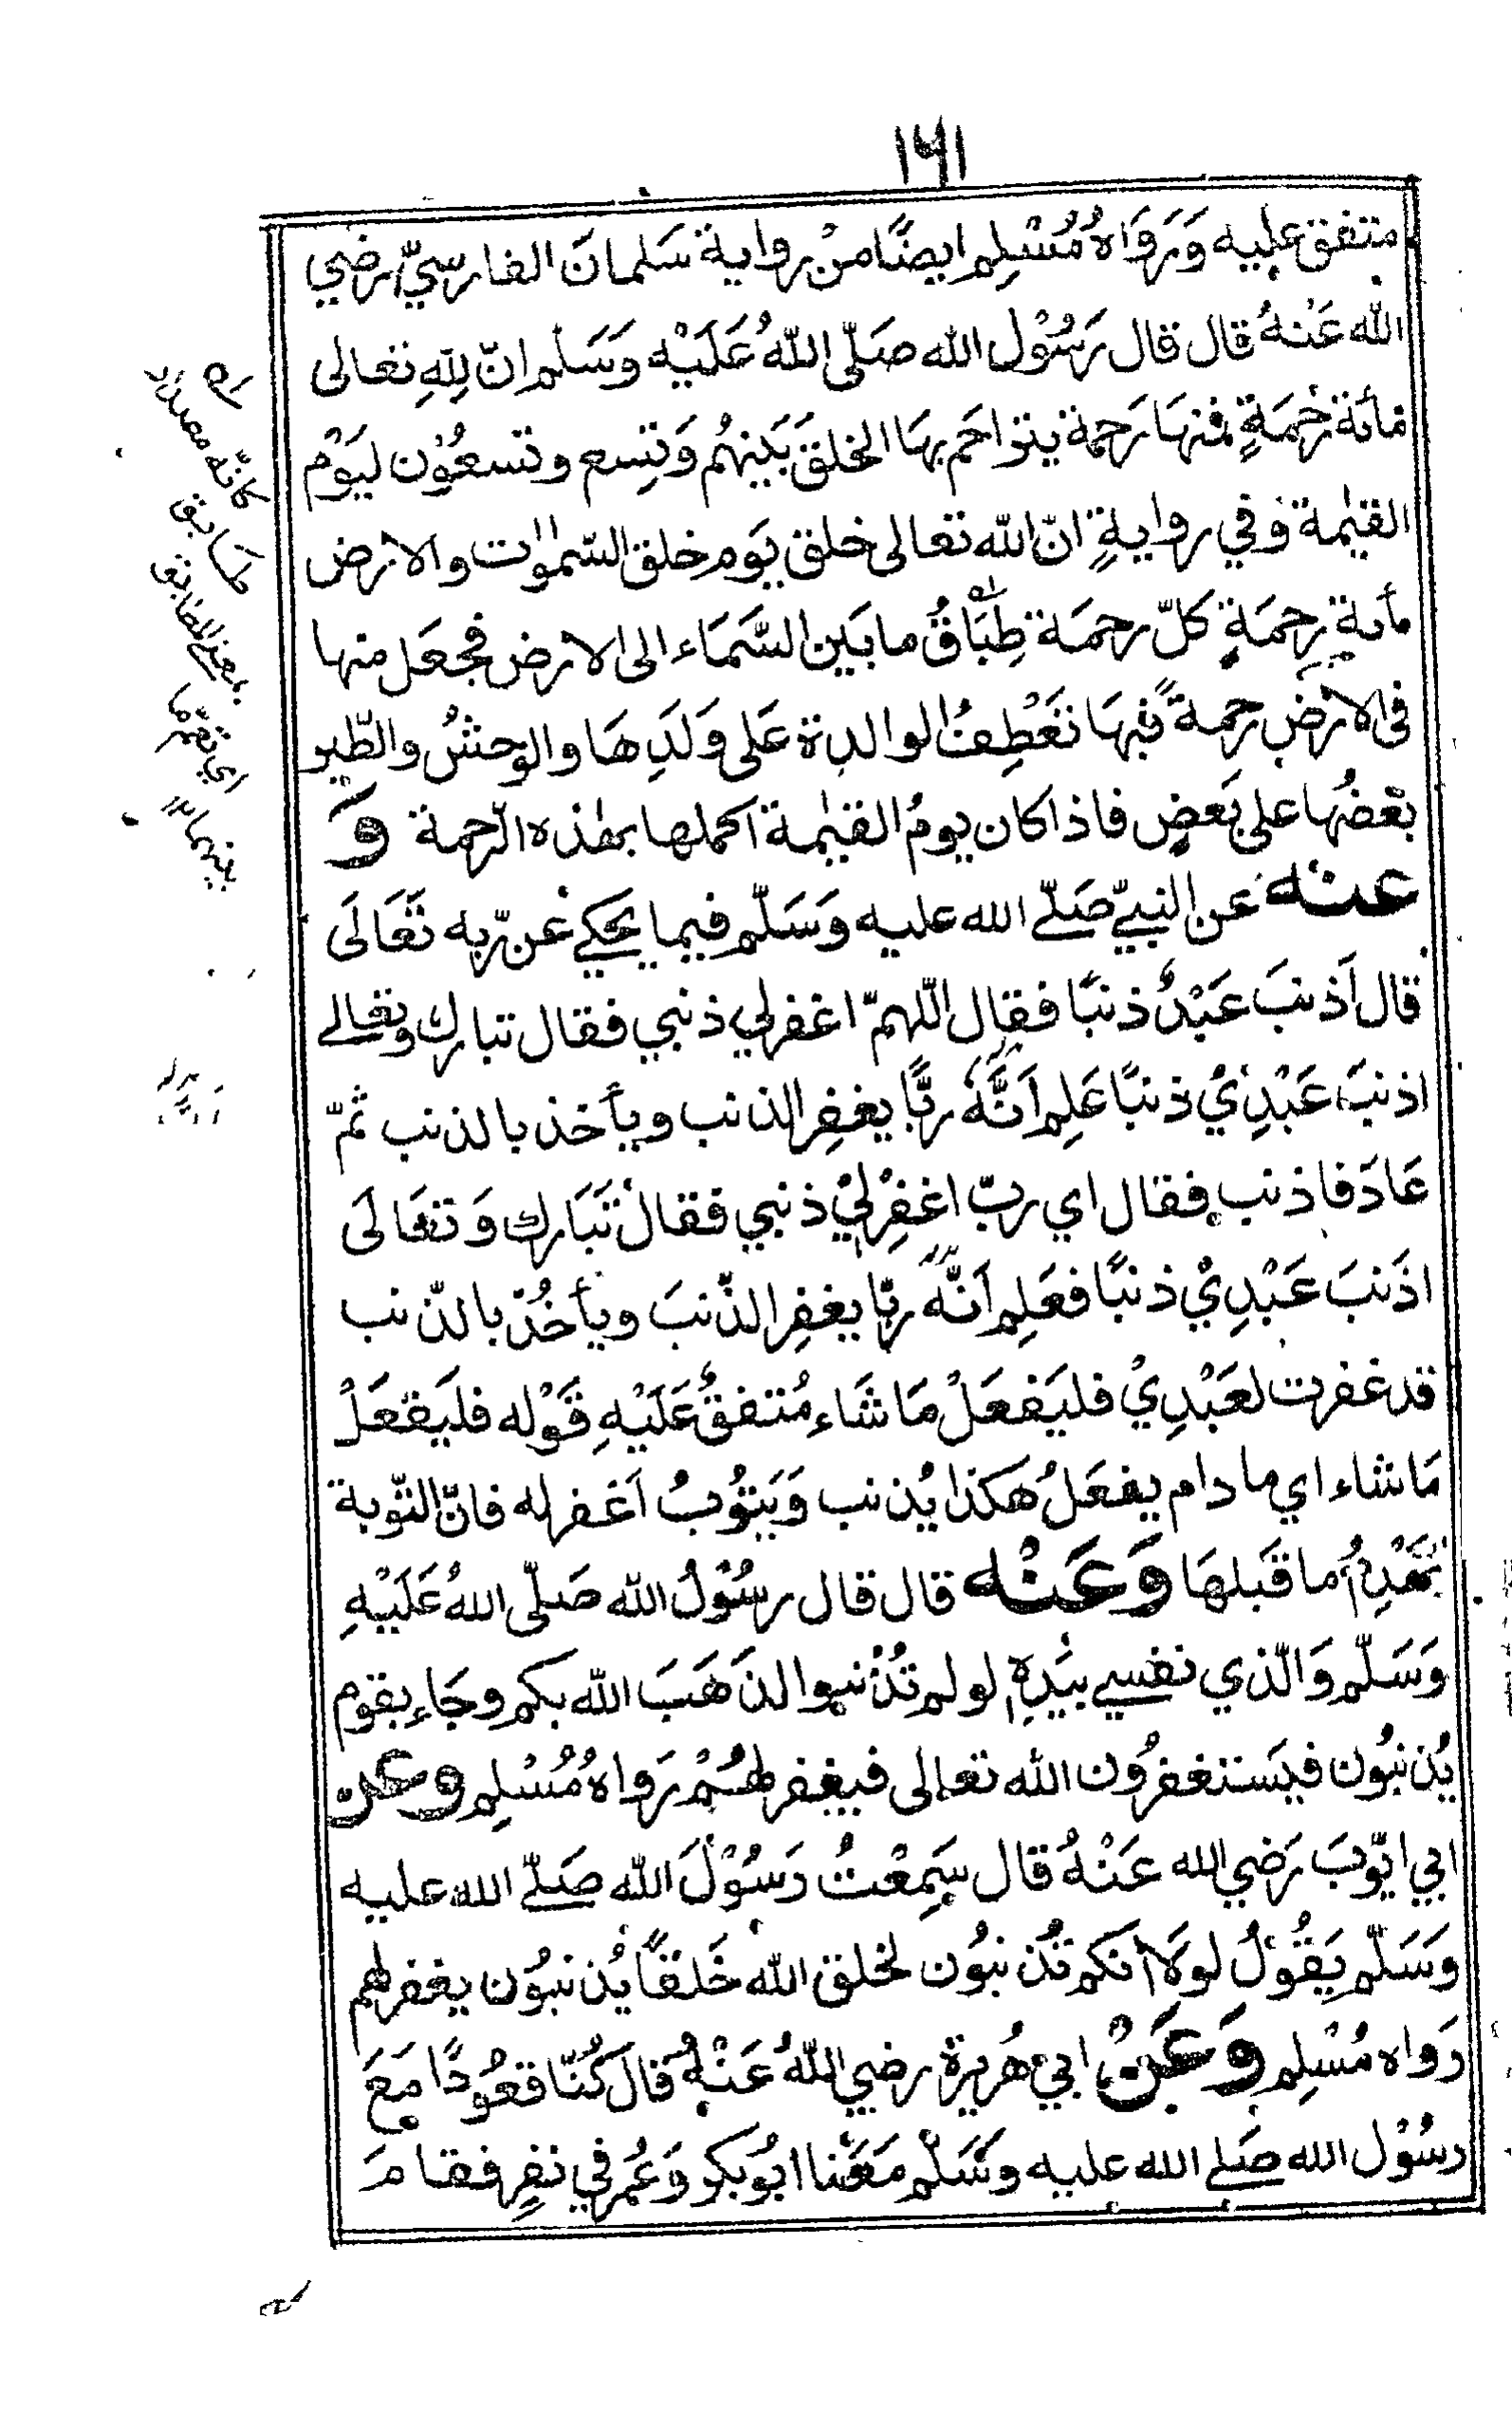 ١٦١
متفق عليه وَرَوَاهُ مُسْلِم ايضًا من رواية سَلمانَ الفارسيّ رضي
الله عَنْهُ قال قال رَسُوْل الله صَلّى اللهُ عَلَيْه وَسَلم انّ لِلّهِ تعالى
مأئة رَحْمَةٍ فمنهَا رَحمة يتراحَم بهَا الخلقَ بَيْنهُم وَتِسع وتسعُوْن ليَوْم
القيٰمة وَفي روايةٍ انّ الله تعالى خلق يَوم خلق السّمٰوٰت والارض
مأئة رحمَةٍ كلّ رحمَة طِبَاقُ ما بَين السَّمَاء الى الارض فجعَل منها
فى الارض رحمةً فبهَا تَعْطِفُ الوالدة عَلى وَلَدِهَا والوحشُ والطّير
بَعْضُها على بَعضٍ فاذا كان يومُ القيٰمة اكملها بهٰذه الرّحمة وَ
عنه عن النبيّ صَلّى الله عليه وَسَلّم فيما يحكي عن رّبه تَعَالَى
قال اَذنبَ عَبْدٌ ذنبًا فقال اللّهمّ اغفرلي ذنبي فقال تبارك وتعالى
اذنبَ عَبْدِيْ ذنبًا عَلِم اَنَّ لَهُ ربًّا يغفِر الذنب ويأخذ بالذنب ثمّ
عَادَ فاذنب فقال اي ربّ اغفِرْليْ ذنبي فقال تَبَارك وَتعَالَى
اذَنبَ عَبْدِيْ ذنبًا فعَلِم اَنَّ لَهُ ربّا يغفِر الذّنبَ ويأخُذ بالذّنب
قد غفرت لعَبْدِيْ فليَفعَلْ مَا شَاء مُتفقٌ عَلَيْهِ قَوْله فليَفعَلْ
مَا شاء اي ما دام يفعَلُ هكذا يُذنب وَيَتُوْبُ اَغفر له فانّ التّوبة
تَهْدِمُ ما قَبلهَا وَعَنْه قال قال رسُوْلُ الله صَلّى اللهُ عَلَيْهِ
وَسَلّم وَالّذي نفسي بيَدِهٖ لو لم تُذْنبوا لذَهَبَ الله بكم وجَاء بقوم
يُذنبُون فيَستغفرُون الله تعالى فيغفر لهُمْ رَوَاهُ مُسْلِم وعن
ابي ايّوبَ رَضي الله عَنْهُ قال سَمِعْتُ رَسُوْلَ الله صَلّى الله عليه
وَسَلّم يَقُوْلُ لولَا انكم تُذنبُون لخلق الله خَلقًا يُذنبُون يغفر لهم
رَواه مُسْلِم وَعَنْ ابي هُريرة رضي اللهُ عَنْهُ قالَ كُنّا قعُودًا مَعَ
رسُوْل الله صَلى الله عليه وَسَلّم مَعَنا ابُوبكر وَعُمر في نفرٍ فقامَ
كانّه مصدر
طَابق
بمعنى المطابق
اي تعمّ
بينهما